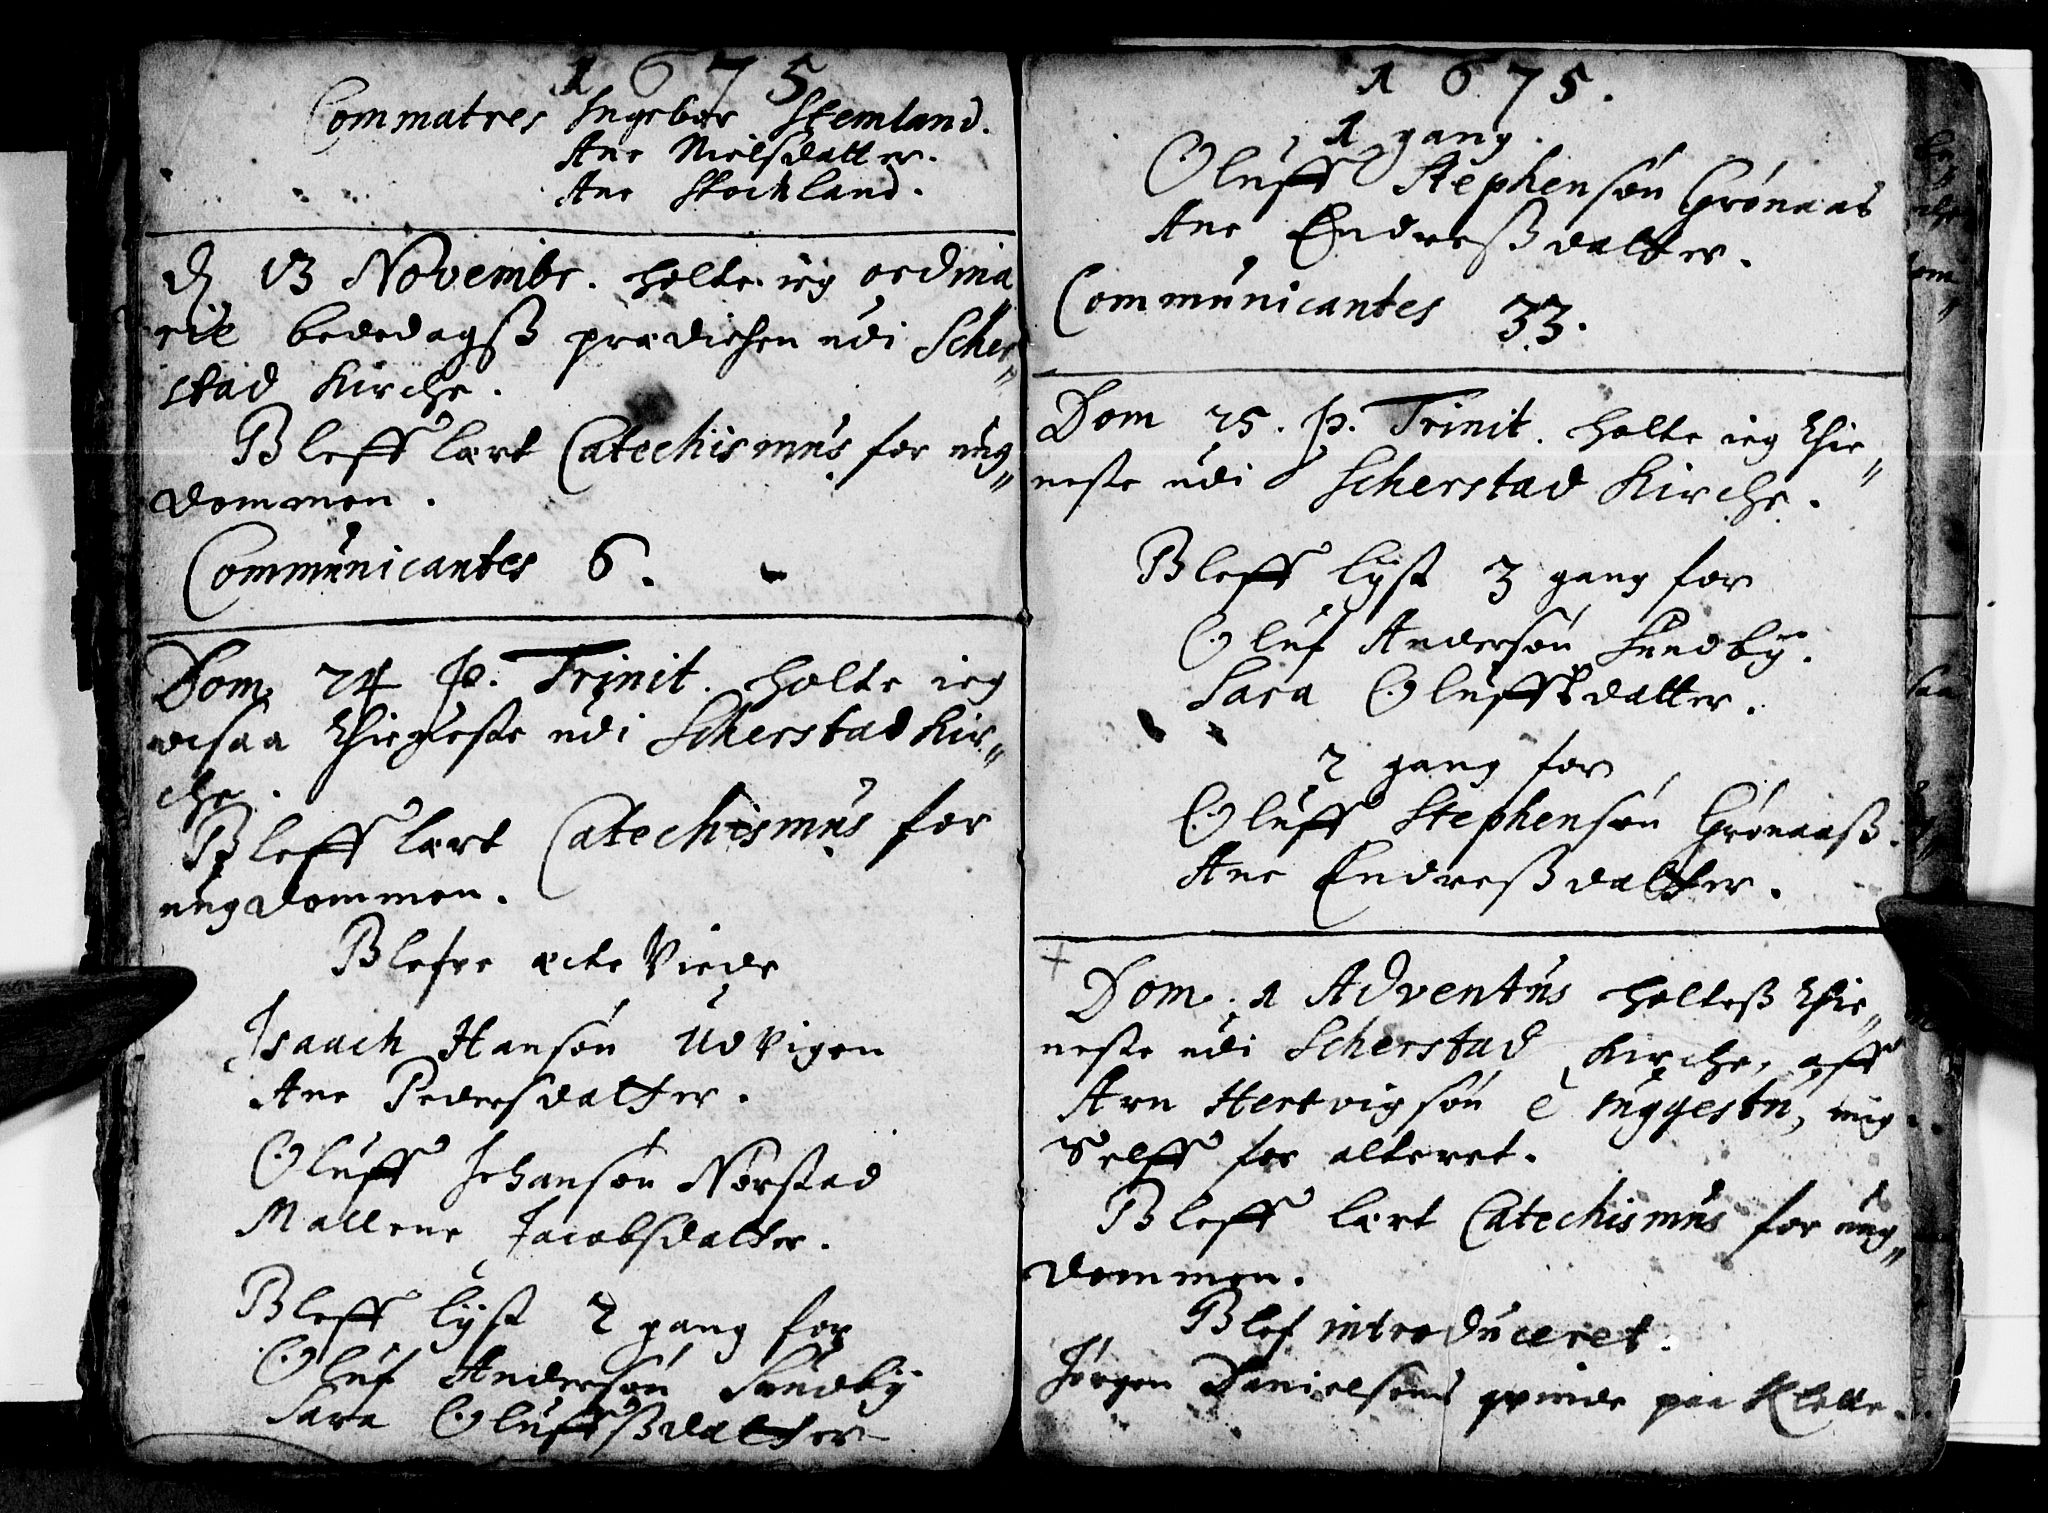 1675
Commatres Ingebor Skemland.
Ane Nielsdatter.
Ane Stochland.
d 13 Novembr. holte ieg ordina„
rie bededagsß prædichen udi Scher„
stad Kirche.
Bleff lært Catechismus for ung„
dommen.
Communicantes 6.
Dom. 24 p. Trinit. holte ieg
ocsaa thieneste udi Scherstad Kir„
che.
Bleff lært Catechismus for
ungdommen.
Blefve ecte Viede
Isaach Hansøn Udvigen
Ane Pedersdatter.
Oluff Johansøn Nørstad
Mallene Jacobsdatter.
Bleff lyst 2 gang for
Oluf Andersøn Sundby
Sara Oluffsßdatter
1675.
1 gang.
Oluff Stephensøn Grønaas
Ane Endreßdatter.
Communicantes 33.
Dom 25. p. Trinit. holte ieg thie„
neste udi Scherstad Kirche.
Bleff lyst 3 gang for
Oluf Andersøn Sundby.
Sara Oluffsdatter.
2 gang for
Oluff Stephensøn Grønaaß.
Ane Endreßdatter.
Dom. 1 Adventus holteß thie„
neste udi Scherstad Kirche, aff
Arn Hertvigsøn è suggestu, mig
Selff for alteret.
Bleff lært Catechismus for ung„
dommen.
Blef introduceret.
Jørgen Danielsøns qvinde paa Klette.